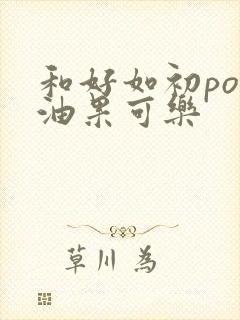 和好如初po
油果可樂
草川 為